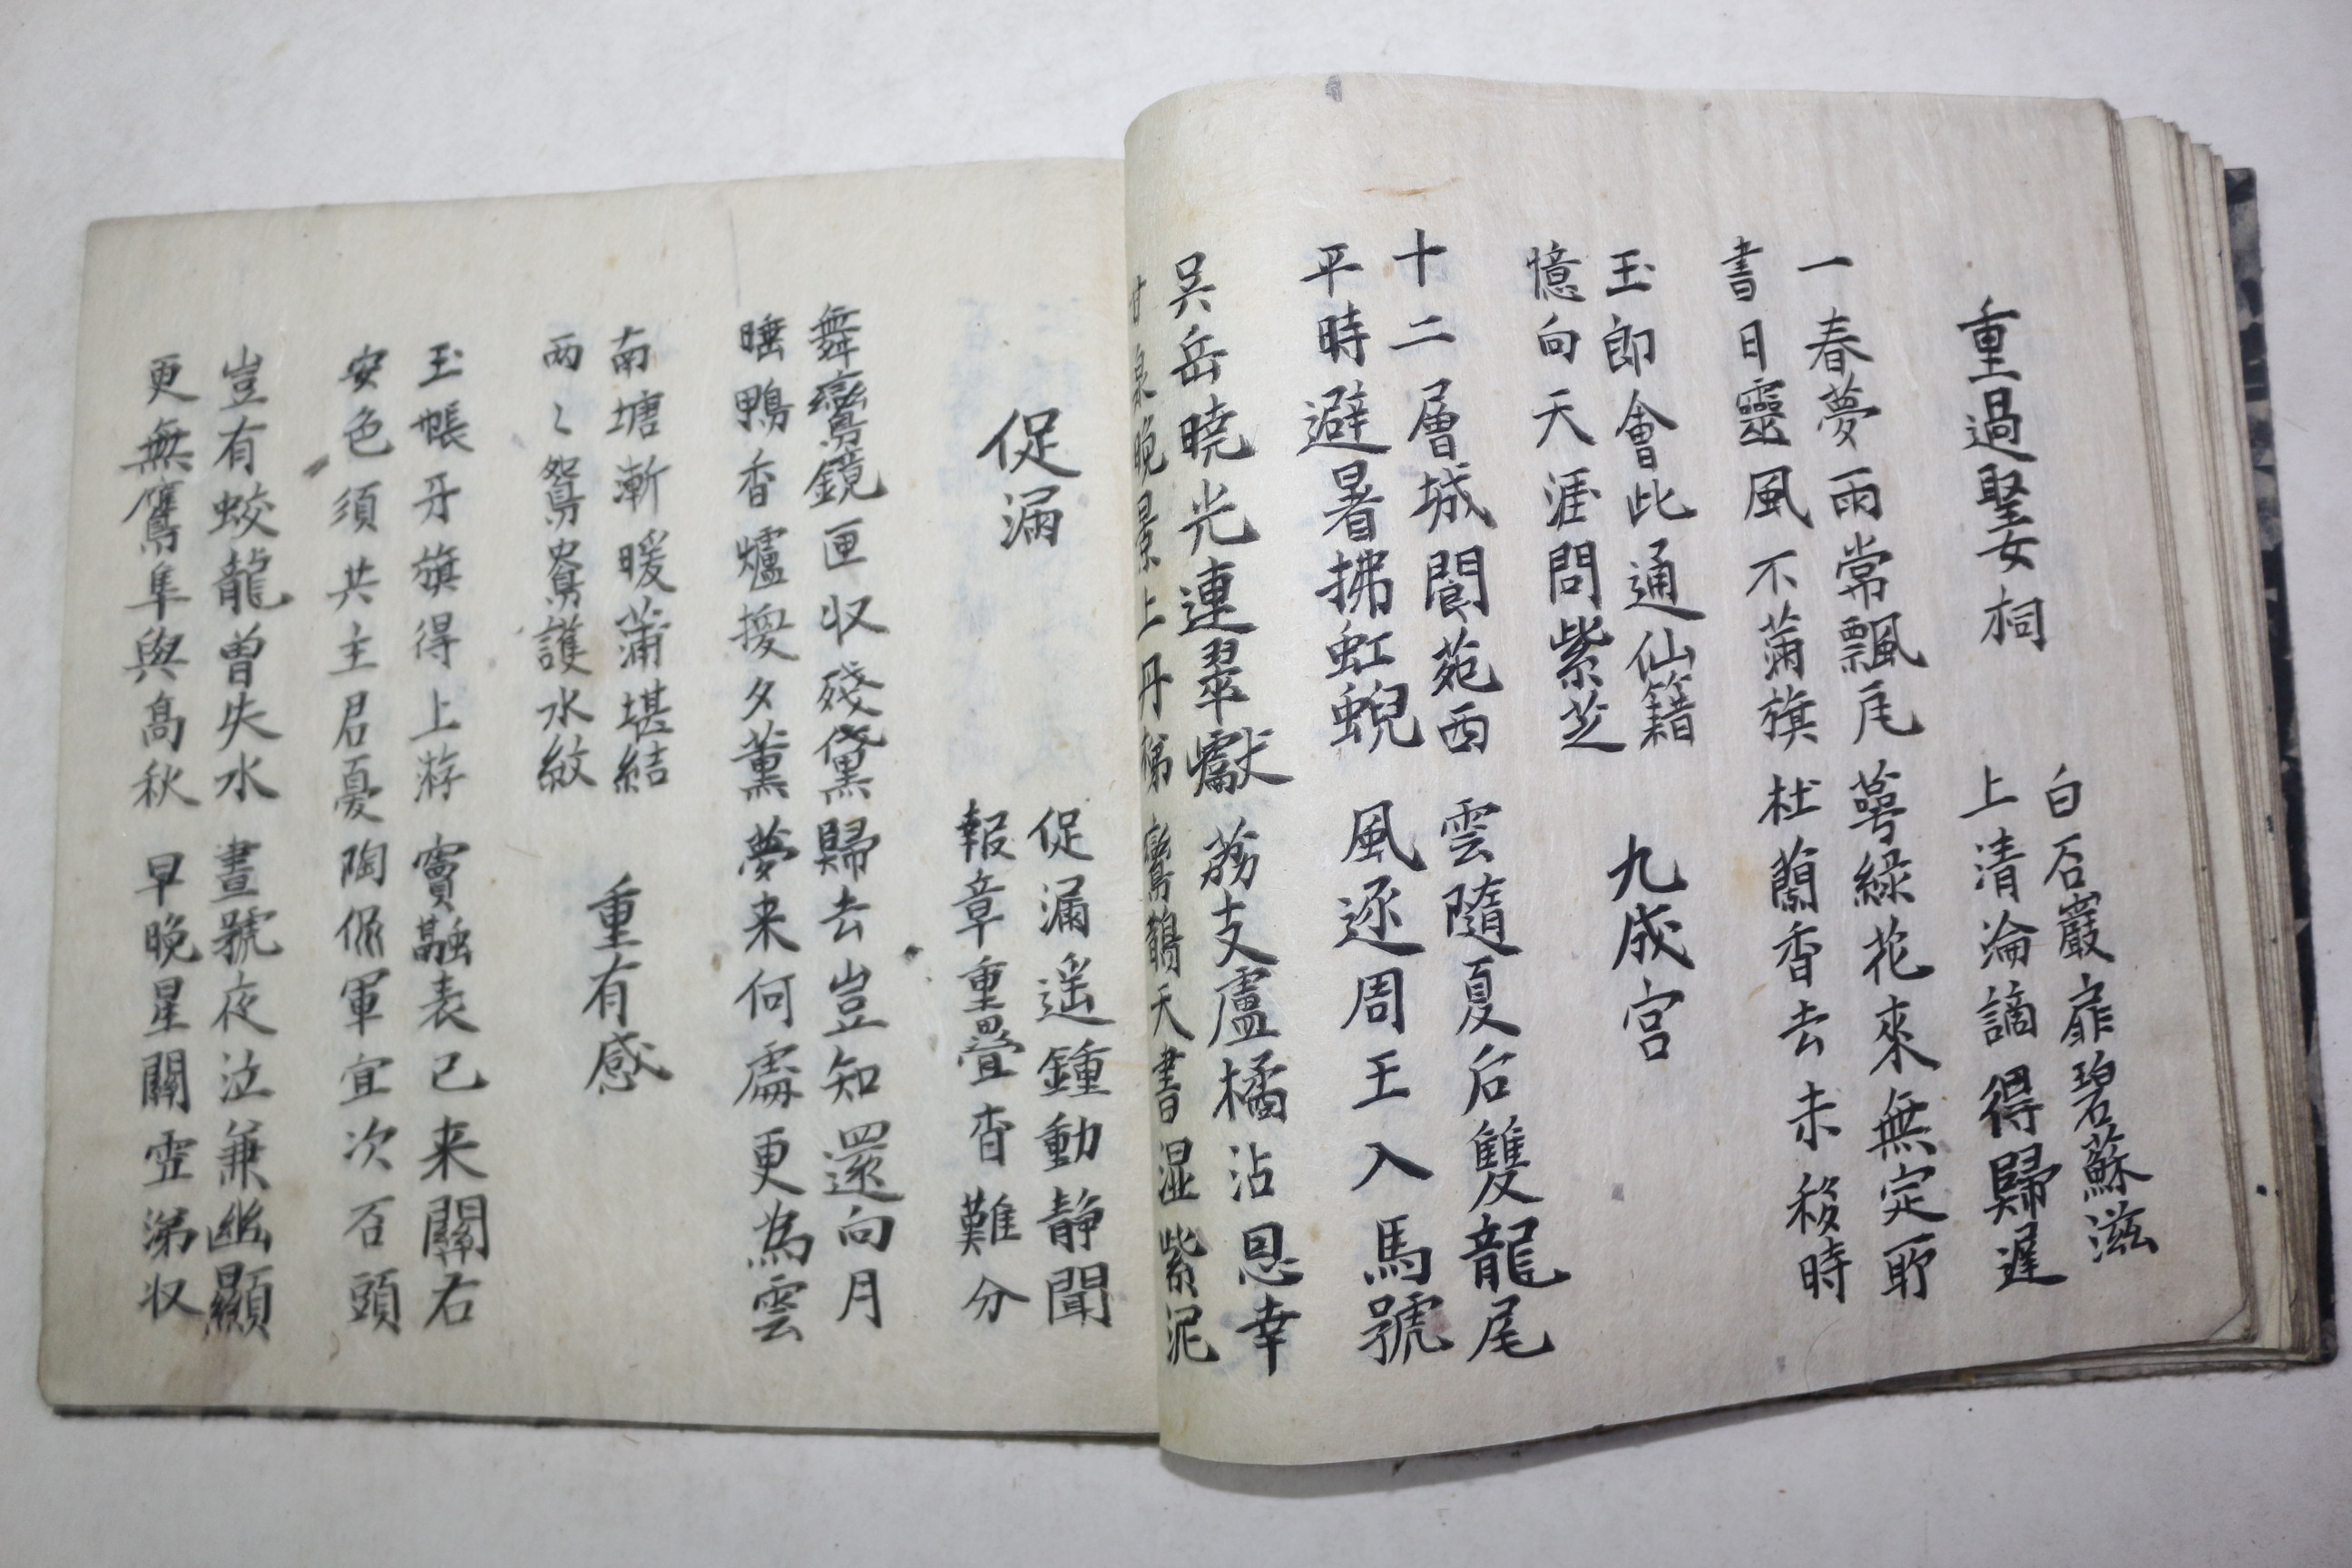 重過聖女祠
白石巖扉碧蘇滋
上清淪謫得歸遲
一春夢雨常飄瓦 萼綠花來無定所
書日靈風不蒲旗 杜蘭香去未移時
玉郎會此通仙籍
憶向天涯問紫芝
九成宮
十二層城閬苑西 雲隨夏后雙龍尾
平時避暑拂虹蜺 風逐周王八馬號
吳岳曉光連翠巘 荔支盧橘沾恩幸
甘泉晚景上丹梯 鸞鵲天書湿紫泥
促漏
促漏遥鍾動静聞
報章重疊杳難分
舞鸞鏡匣収殘黛 歸去豈知還向月
睡鴨香爐換夕薰 夢来何處更為雲
南塘漸暖蒲堪結
兩〻鴛鴦護水紋
重有感
玉帳牙旗得上游 竇融表已来關右
安危須共主君憂 陶侃軍宜次石頭
豈有蛟龍曾失水 晝號夜泣兼幽顯
更無鷹隼與高秋 早晚星關雪涕収